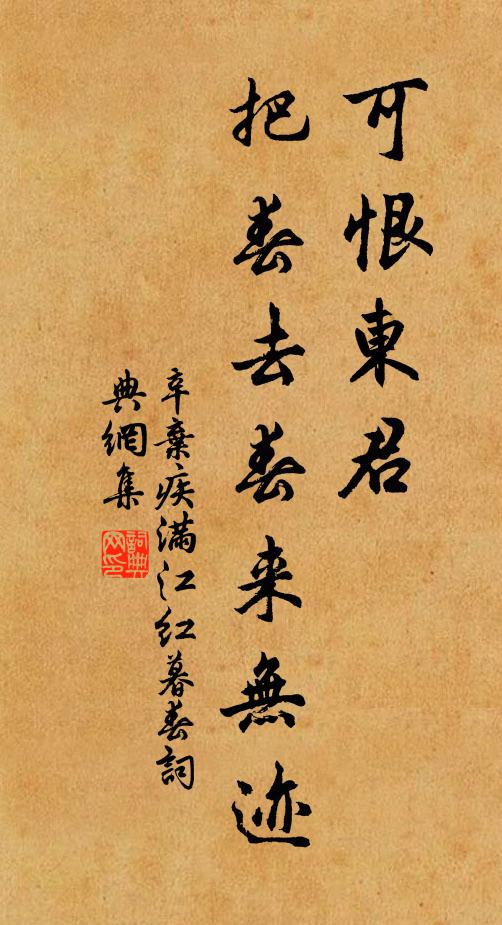 可恨東君
把春去春来無迹
辛棄疾满江红暮春詞
典網集
詞典網印